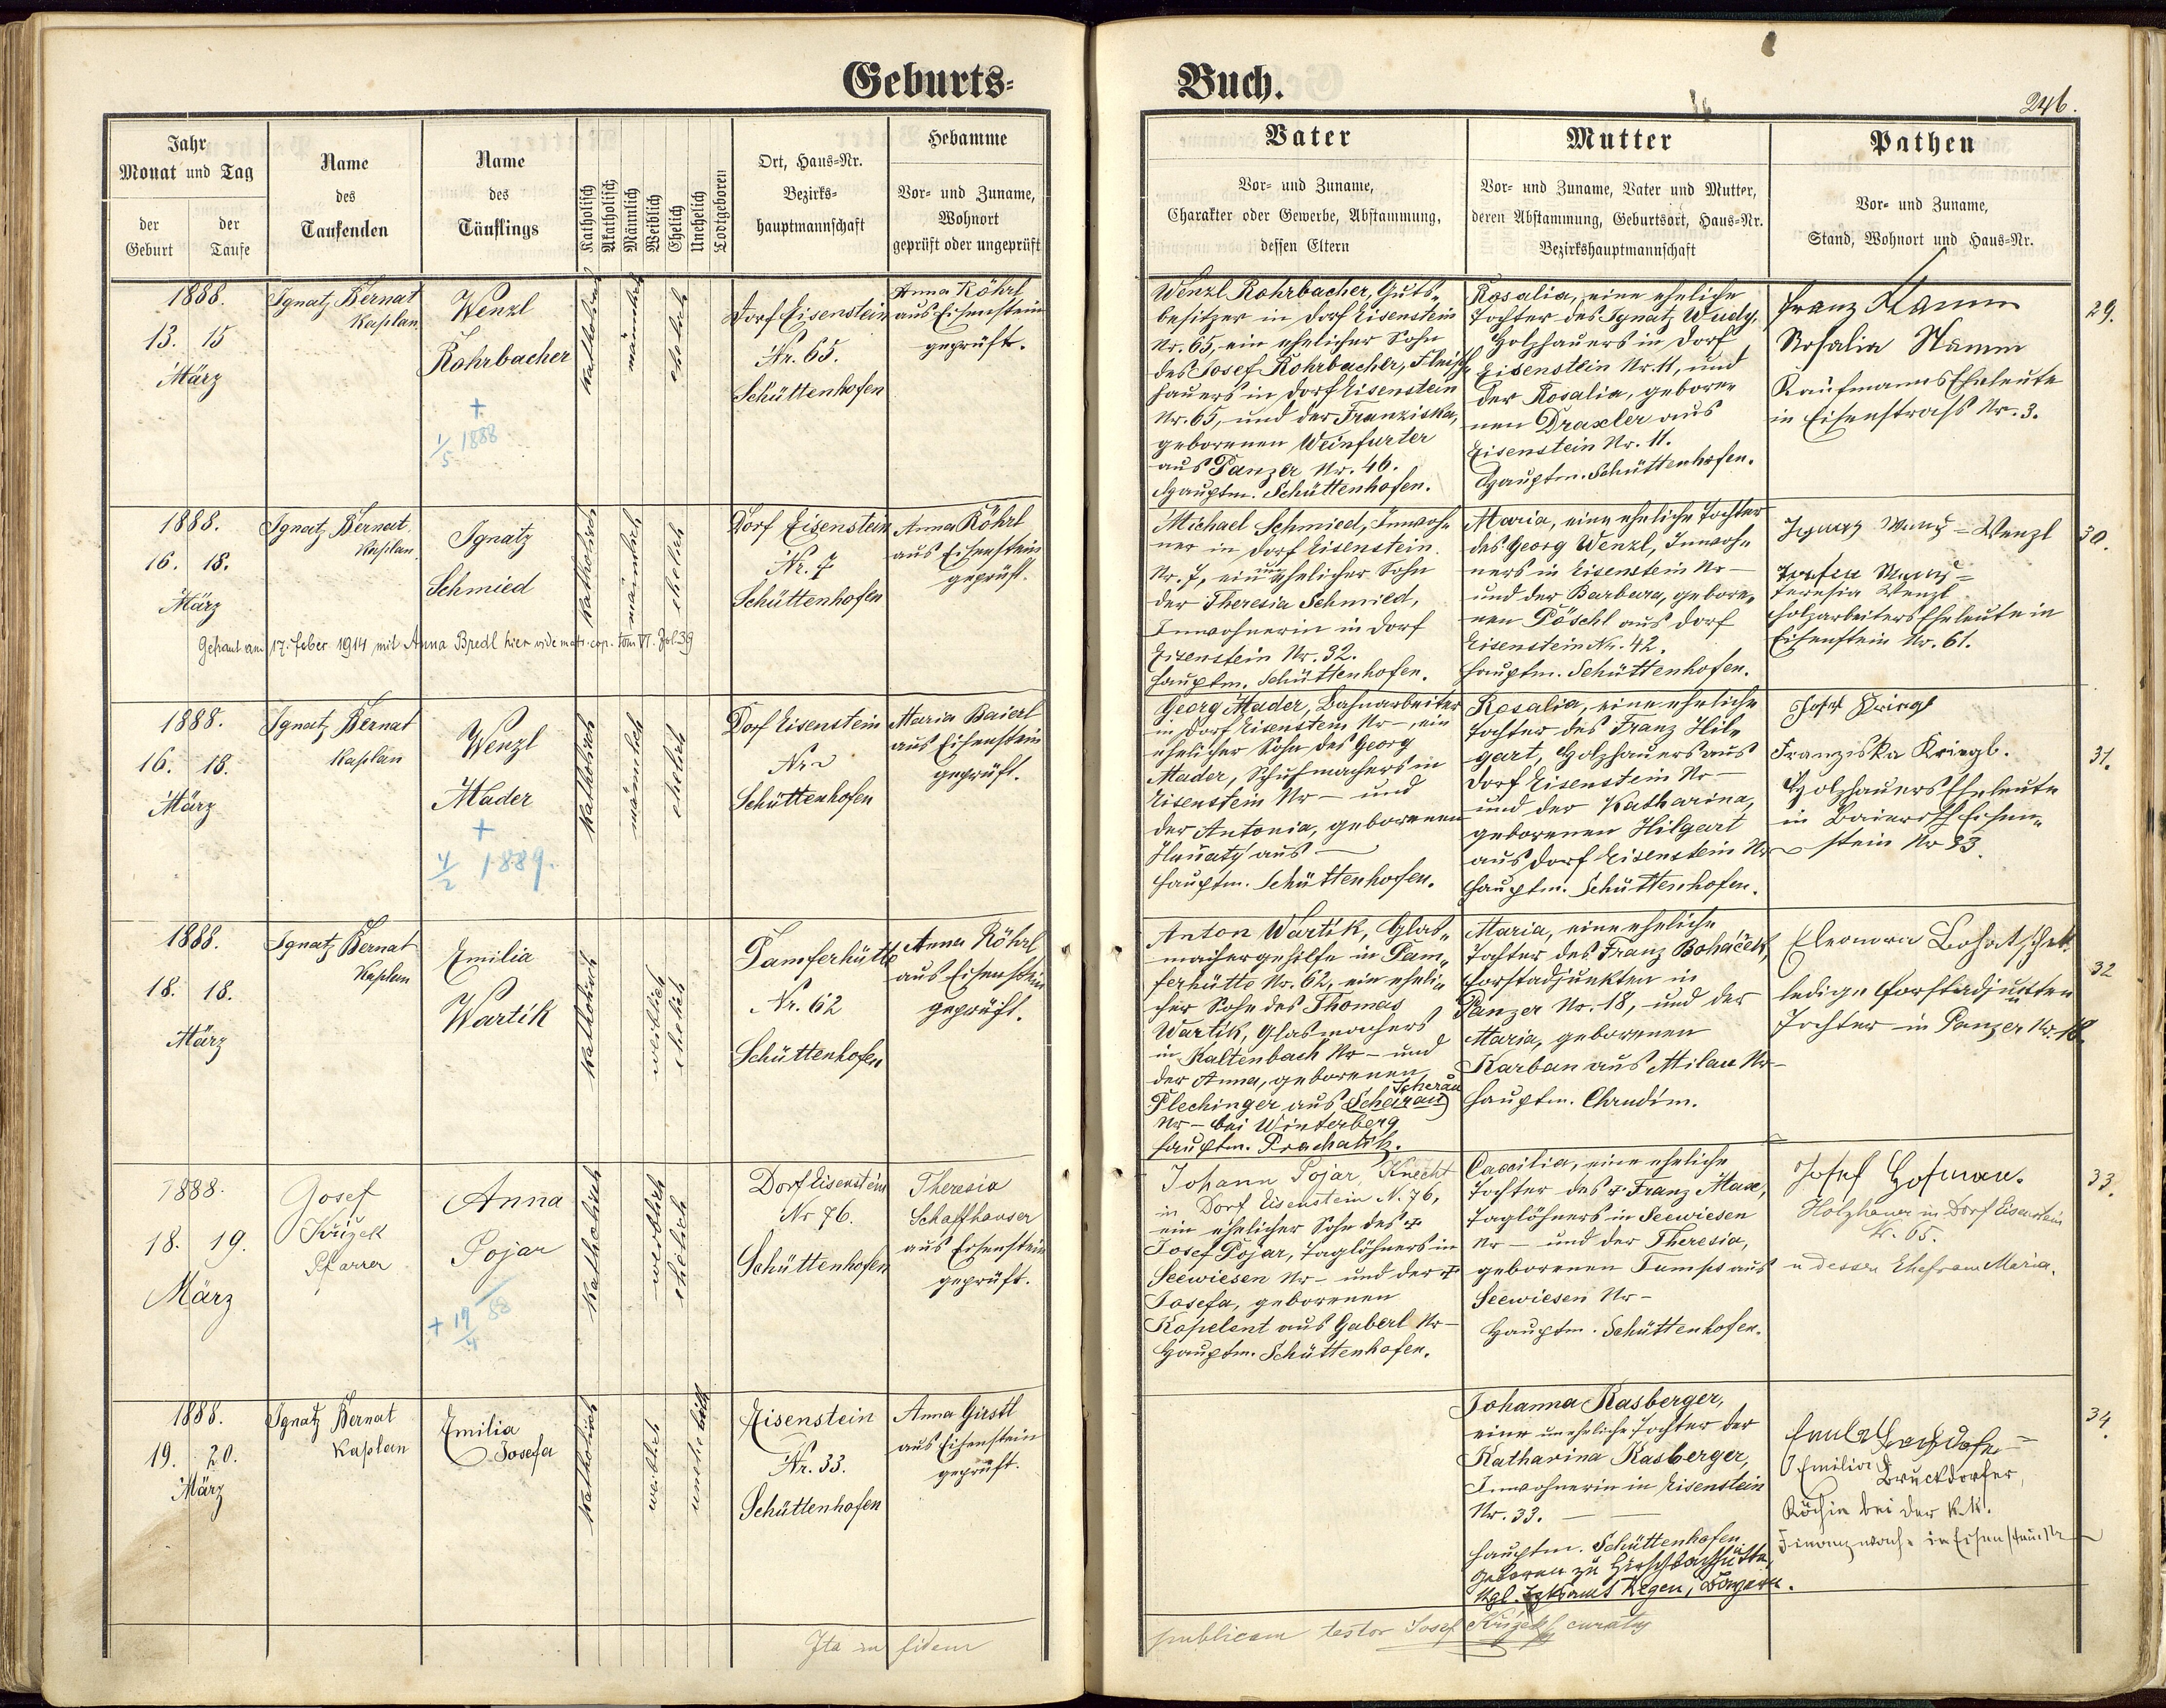 Geburts-
Buch.
246.
Jahr
Monat und Tag
der Geburt
der Taufe
Name
des
Taufenden
Name
des
Täuflings
Katholisch
Akatholisch
Männlich
Weiblich
Ehelich
Unehelich
Todtgeboren
Ort, Haus-Nr.
Bezirks-
hauptmannschaft
Hebamme
Vor- und Zuname,
Wohnort
geprüft oder ungeprüft
Vater
Vor- und Zuname,
Charakter oder Gewerbe, Abstammung,
dessen Eltern
Mutter
Vor- und Zuname, Vater und Mutter,
deren Abstammung, Geburtsort, Haus-Nr.
Bezirkshauptmannschaft
Pathen
Vor- und Zuname,
Stand, Wohnort und Haus-Nr.
1888.
13. 15
März
Ignatz Bernat
Kaplan
Wenzl
Rohrbacher
+
1/5 1888
katholisch
männlich
ehelich
Dorf Eisenstein
Nr. 65.
Schüttenhofen
Anna Röhrl
aus Eisenstein
geprüft.
Wenzl Rohrbacher, Guts-
besitzer in Dorf Eisenstein
Nr. 65, ein ehelicher Sohn
des Josef Rohrbacher, Fleisch-
hauers in Dorf Eisenstein
Nr. 65, und der Franziska,
geborenen Weinfurter
aus Panzer Nr. 46.
Hauptm. Schüttenhofen.
Rosalia, eine eheliche
Tochter des Ignatz Wudy,
Holzhauers in Dorf
Eisenstein Nr. 11, und
der Rosalia, gebore-
nen Draxler aus
Eisenstein Nr. 11.
Hauptm. Schüttenhofen.
Franz Stamm
Rosalia Stamm
Kaufmanns Eheleute
in Eisenstrass Nr. 3.
29.
1888.
16. 18.
März
Ignatz Bernat
Kaplan
Ignatz
Schmied
Getraut am 17. feber 1914 mit Anna Bredl hier vide matr. cop. tom VI. Fol 39
katholisch
männlich
ehelich
Dorf Eisenstein
Nr. 7
Schüttenhofen
Anna Röhrl
aus Eisenstein
geprüft.
Michael Schmied, Inwoh-
ner in Dorf Eisenstein
Nr. 7, ein unehelicher Sohn
der Theresia Schmied,
Inwohnerin in Dorf
Eisenstein Nr. 32.
Hauptm. Schüttenhofen.
Maria, eine eheliche Tochter
des Georg Wenzl, Inwoh-
ners in Eisenstein Nr —
und der Barbara, gebore-
nen Pöschl aus Dorf
Eisenstein Nr. 42.
Hauptm. Schüttenhofen.
Ignaz = Wenzl
Teresia Wenzl
Holzarbeiters Eheleute in
Eisenstein Nr. 61.
30.
1888.
16. 18.
März
Ignatz Bernat
Kaplan
Wenzl
Mader
+
4/2 1889.
katholisch
männlich
ehelich
Dorf Eisenstein
Nr
Schüttenhofen
Maria Baierl
aus Eisenstein
geprüft.
Georg Mader, Bahnarbeiter
in Dorf Eisenstein Nr —, ein
ehelicher Sohn des Georg
Mader, Schuhmachers in
Eisenstein Nr — und
der Antonia, geborenen
aus —
Hauptm. Schüttenhofen.
Rosalia, eine eheliche
Tochter des Franz Hil-
gart, Holzhauers aus
Dorf Eisenstein Nr —
und der Katharina,
geborenen Hilgart
aus Dorf Eisenstein Nr
Hauptm. Schüttenhofen.
Josef Kriegl
Franziska Kriegl.
Holzhauers Eheleute
in Bairisch Eisen-
stein Nr 93.
31.
1888.
18. 18.
März
Ignatz Bernat
Kaplan
Emilia
Wartik
katholisch
weiblich
ehelich
Pamferhütte
Nr. 62
Schüttenhofen
Anna Röhrl
aus Eisenstein
geprüft.
Anton Wartik, Glas-
machergehilfe in Pam-
ferhütte Nr. 62, ein eheli-
cher Sohn des Thomas
Wartik, Glasmachers
in Kaltenbach Nr — und
der Anna, geborenen
Plechinger aus (Scheirau) Scherau
Nr — bei Winterberg
Hauptm. Prachatitz.
Maria, eine eheliche
Tochter des Franz Boháček,
Forstadjunkten in
Panzer Nr. 18, und der
Maria, geborenen
Karban aus Milau Nr —
Hauptm. Chrudim.
Eleonora Bohatschek
ledige Forstadjunkten
Tochter in Panzer Nr. 18.
32
1888.
18. 19.
März
Josef
Křížek
Pfarrer
Anna
Pojar
+ 17/4 88
katholisch
weiblich
ehelich
Dorf Eisenstein
Nr 76.
Schüttenhofen
Theresia
Schaffhauser
aus Eisenstein
geprüft.
Johann Pojar, Knecht
in Dorf Eisenstein N. 76,
ein ehelicher Sohn des +
Josef Pojar, Taglöhners in
Seewiesen Nr — und der +
Josefa, geborenen
Kopelent aus Gaberl Nr —
Hauptm. Schüttenhofen.
Caecilia, eine eheliche
Tochter des + Franz Max,
Taglöhners in Seewiesen
Nr — und der Theresia,
geborenen Tumps aus
Seewiesen Nr —
Hauptm. Schüttenhofen.
Josef Hofman.
Holzhauer in Dorf Eisenstein
Nr. 65.
u dessen Ehefrau Maria.
33.
1888.
19. 20.
März
Ignatz Bernat
Kaplan
Emilia
Josefa
katholisch
weiblich
unehelich
Eisenstein
Nr. 33.
Schüttenhofen
Anna Girstl
aus Eisenstein
geprüft.
Johanna Kasberger,
eine uneheliche Tochter der
Katharina Kasberger,
Inwohnerin in Eisenstein
Nr. 33. —
Hauptm. Schüttenhofen
geboren zu Hirschbachhütte,
Kgl. Regen, Bayern.
Emilia Bruckdorfer,
Köchin bei der k.k.
Finanzwache in Eisenstein
34.
Ita in fidem
publicam testor Josef Křížek curatus